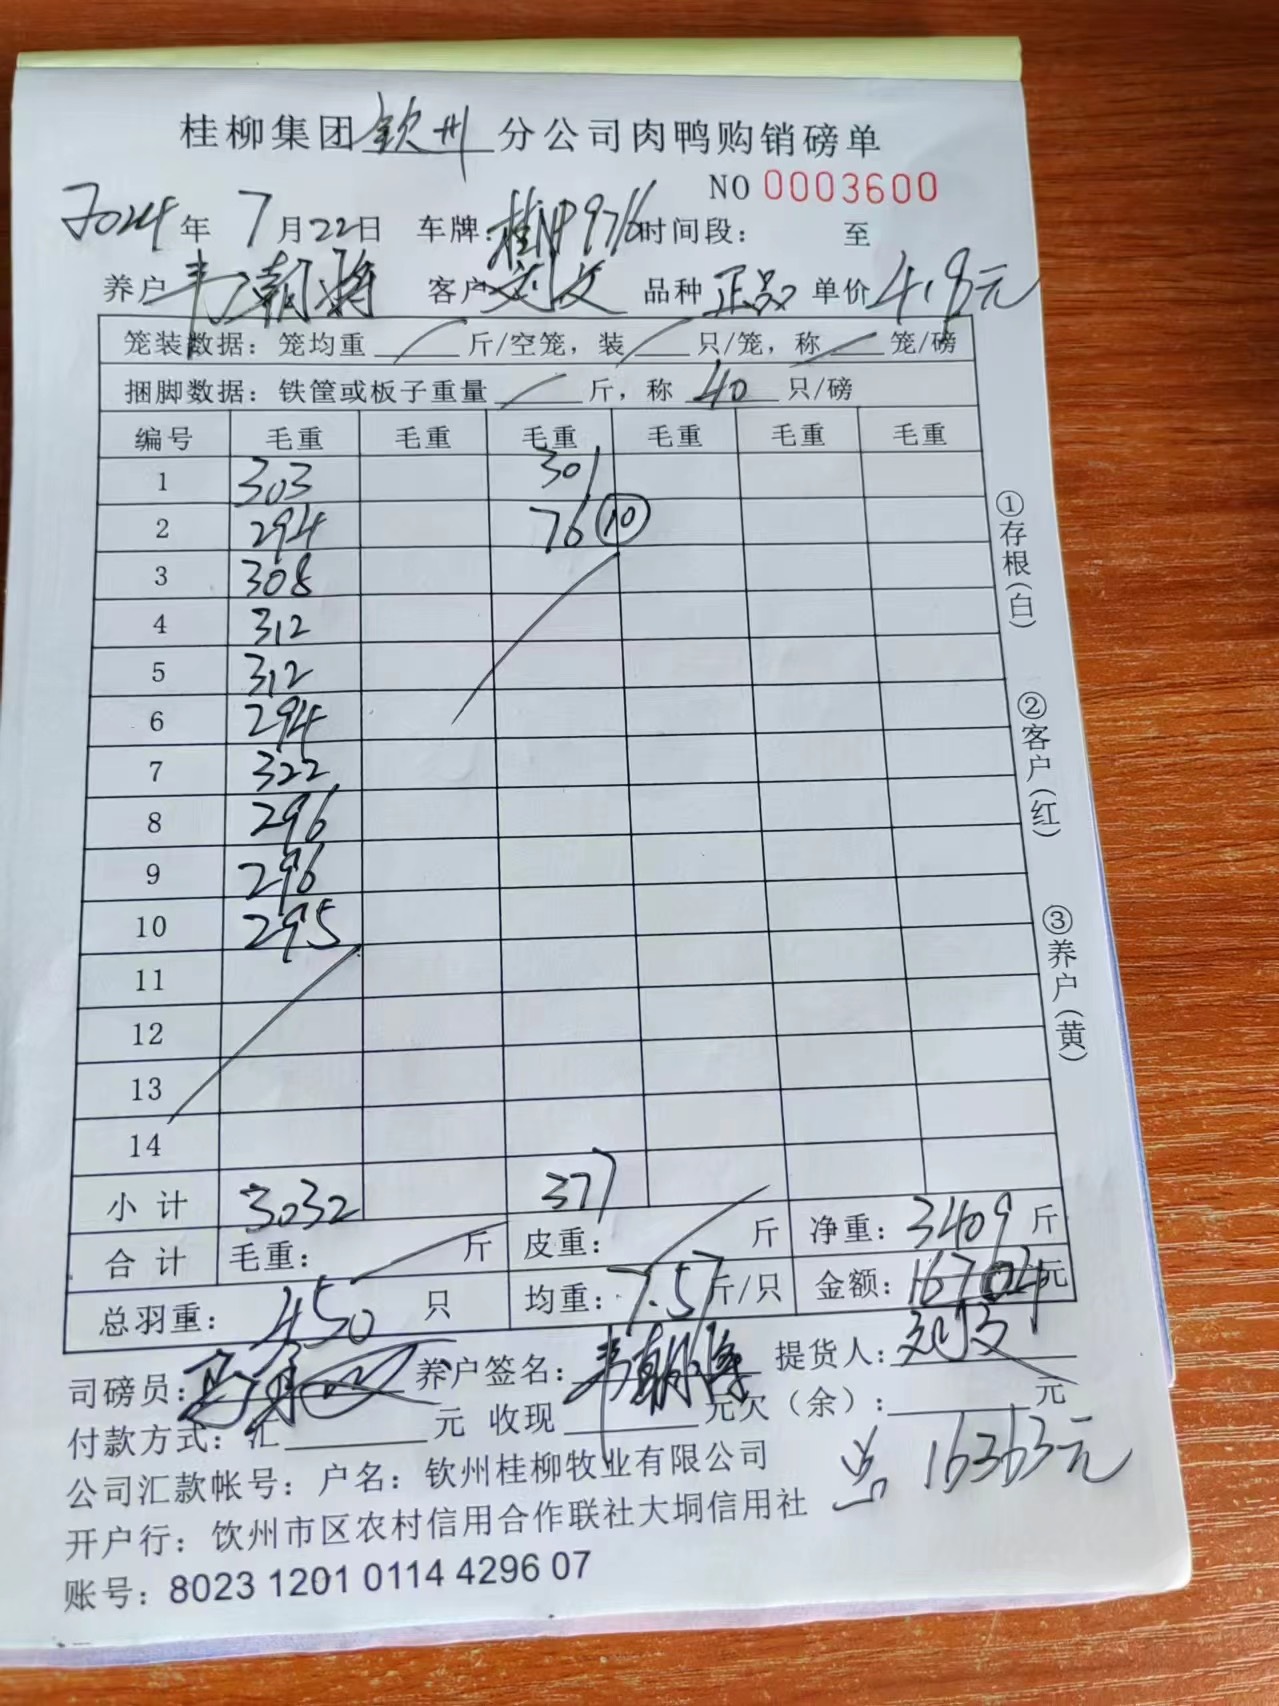 桂柳集团钦州分公司肉鸭购销磅单
NO 0003600
2024年7月22日 车牌: 时间段: 至
养户 韦潮 客户 刘文 品种 正品 单价 4.9元
笼装数据：笼均重 斤/空笼，装 只/笼，称 笼/磅
捆脚数据：铁筐或板子重量 斤，称 40 只/磅
编号 毛重 毛重 毛重 毛重 毛重 毛重
1 303 301
2 294 76 ⑩
3 308
4 312
5 312
6 294
7 322
8 296
9 296
10 295
11
12
13
14
小计 3032 377
合计 毛重： 斤 皮重： 斤 净重：3409 斤
总羽重：450 只 均重：7.57 斤/只 金额：16704元
司磅员： 养户签名：韦潮 提货人：刘文
付款方式：汇 元 收现 元欠（余）： 元
总 16363元
公司汇款帐号：户名：钦州桂柳牧业有限公司
开户行：钦州市区农村信用合作联社大垌信用社
账号：8023 1201 0114 4296 07
①存根（白）
②客户（红）
③养户（黄）